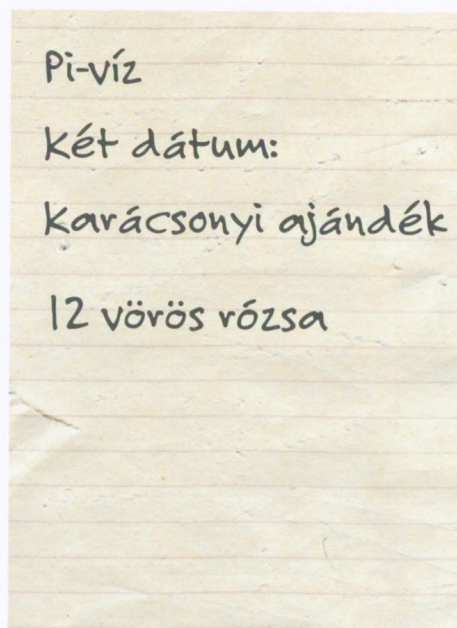 Pi-víz
Két dátum:
Karácsonyi ajándék
12 vörös rózsa